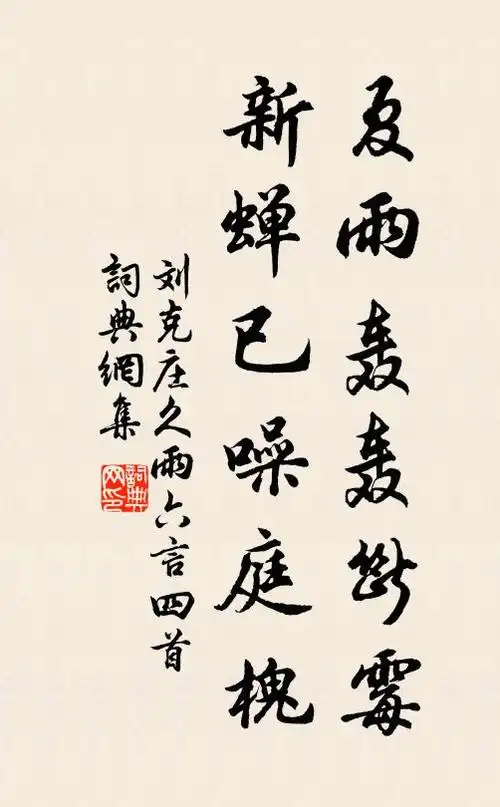 夏雨轰轰断霉
新蝉已噪庭槐
刘克庄久雨六言四首
詞典網集
詞典网印